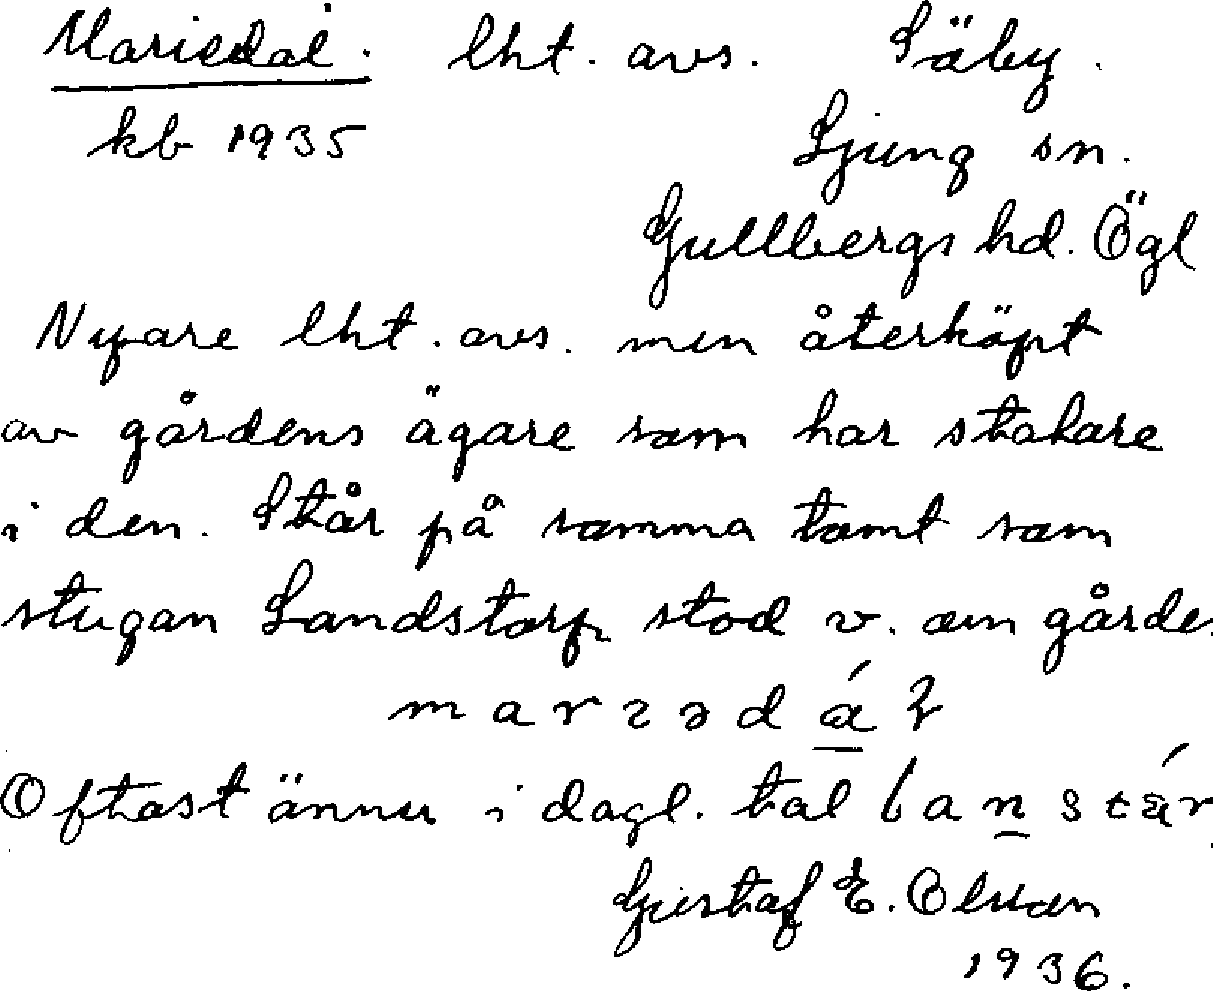 Mariedal. lht. avs. Säby.
kb 1935 Ljung sn.
Gullbergs hd. Ögl
Nyare lht. avs. men återköpt
av gårdens ägare som har statare
i den. Står på samma tomt som
stugan Landstorp stod v. om gårde
Oftast ännu i dagl. tal
Gustaf E. Olsson
1936.